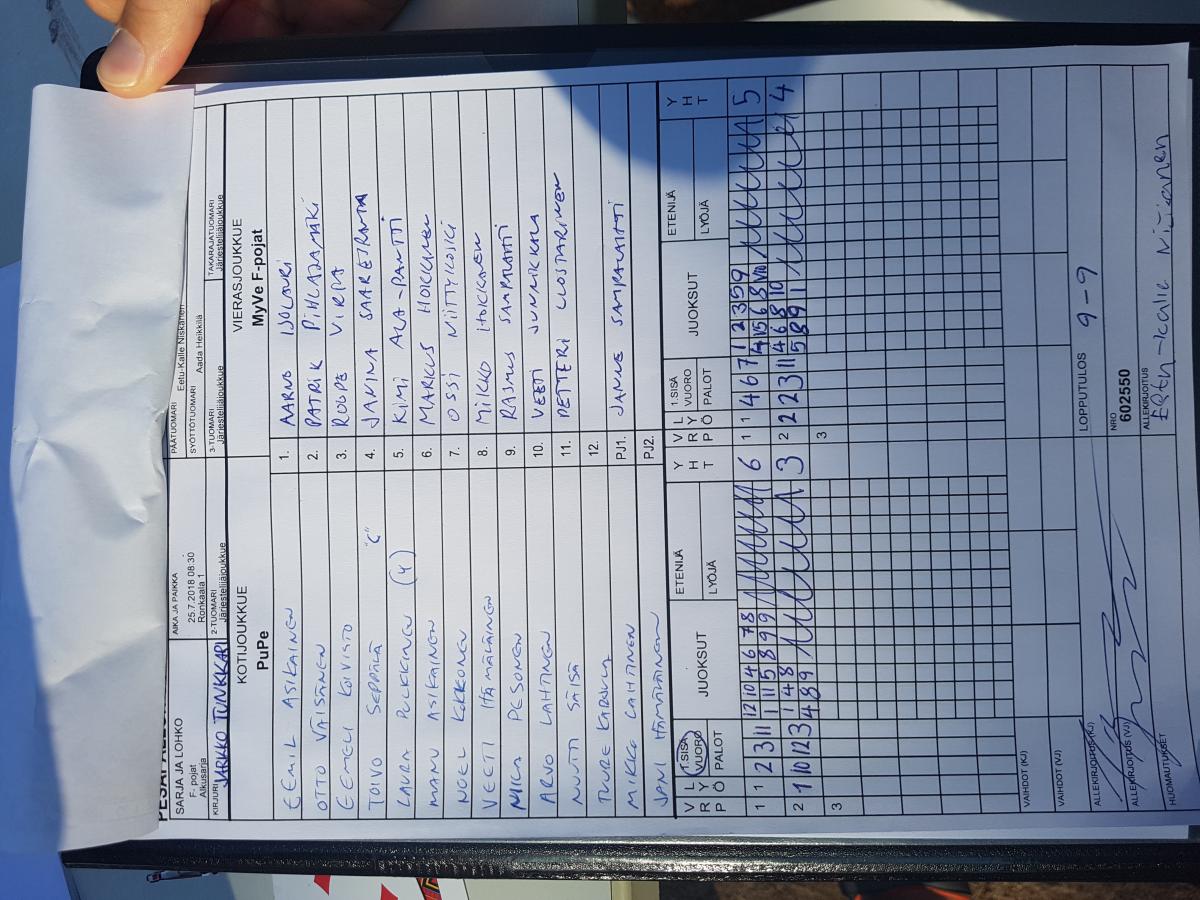 SARJA JA LOHKO
F- pojat
Alkusarja
AIKA JA PAIKKA
25.7.2018 08:30
Ronkaala 1
PÄÄTUOMARI
Eetu-Kalle Niskanen
SYÖTTÖTUOMARI
Aada Heikkilä
KIRJURI JARKKO TUNKKARI
2-TUOMARI
Järjestelijäjoukkue
3-TUOMARI
Järjestelijäjoukkue
TAKARAJATUOMARI
Järjestelijäjoukkue
KOTIJOUKKUE
PuPe
VIERASJOUKKUE
MyVe F-pojat
EEMIL ASIKAINEN 1. AARNE ISOLAURI
OTTO VÄISÄNEN 2. PATRIK PIHLAJAMÄKI
EEMELI KOIVISTO 3. ROOPE VIRPA
TOIVO SEPPÄLÄ "C" 4. JANINA SAARESRANTA
LAURA PULKKINEN (4) 5. KIMI ALA-PANTTI
MANU ASIKAINEN 6. MARKUS HOIKKANEN
NOEL KEKKONEN 7. OSSI NIITTYKOSKI
VEETI HÄMÄLÄINEN 8. MIKKO HOIKKANEN
MICA PESONEN 9. RASMUS SAMPALAHTI
ARVO LAHTINEN 10. VEETI JUNNIKKALA
NUUTI SÄISÄ 11. PETTERI LUOSTARINEN
TUURE 12.
MIKKO LAHTINEN PJ1. JANNE SAMPALAHTI
JANI HÄMÄLÄINEN PJ2.
VRP LYÖ 1.SISÄ VUORO PALOT JUOKSUT ETENIJÄ LYÖJÄ YHT VRP LYÖ 1.SISÄ VUORO PALOT JUOKSUT ETENIJÄ LYÖJÄ YHT
1 1 2 3 11 12 10 4 6 7 8 6 1 1 4 6 7 1 2 3 5 9 5
1 11 5 8 9 9 4 5 6 8
2 1 10 12 3 1 4 8 3 2 2 2 3 11 4 6 8 10 4
4 8 9 5 8 9 1
3 3
VAIHDOT (KJ)
VAIHDOT (VJ)
ALLEKIRJOITUS (KJ)
LOPPUTULOS 9-9
ALLEKIRJOITUS (VJ)
NRO
602550
HUOMAUTUKSET
ALLEKIRJOITUS
Eetu-Kalle Niskanen